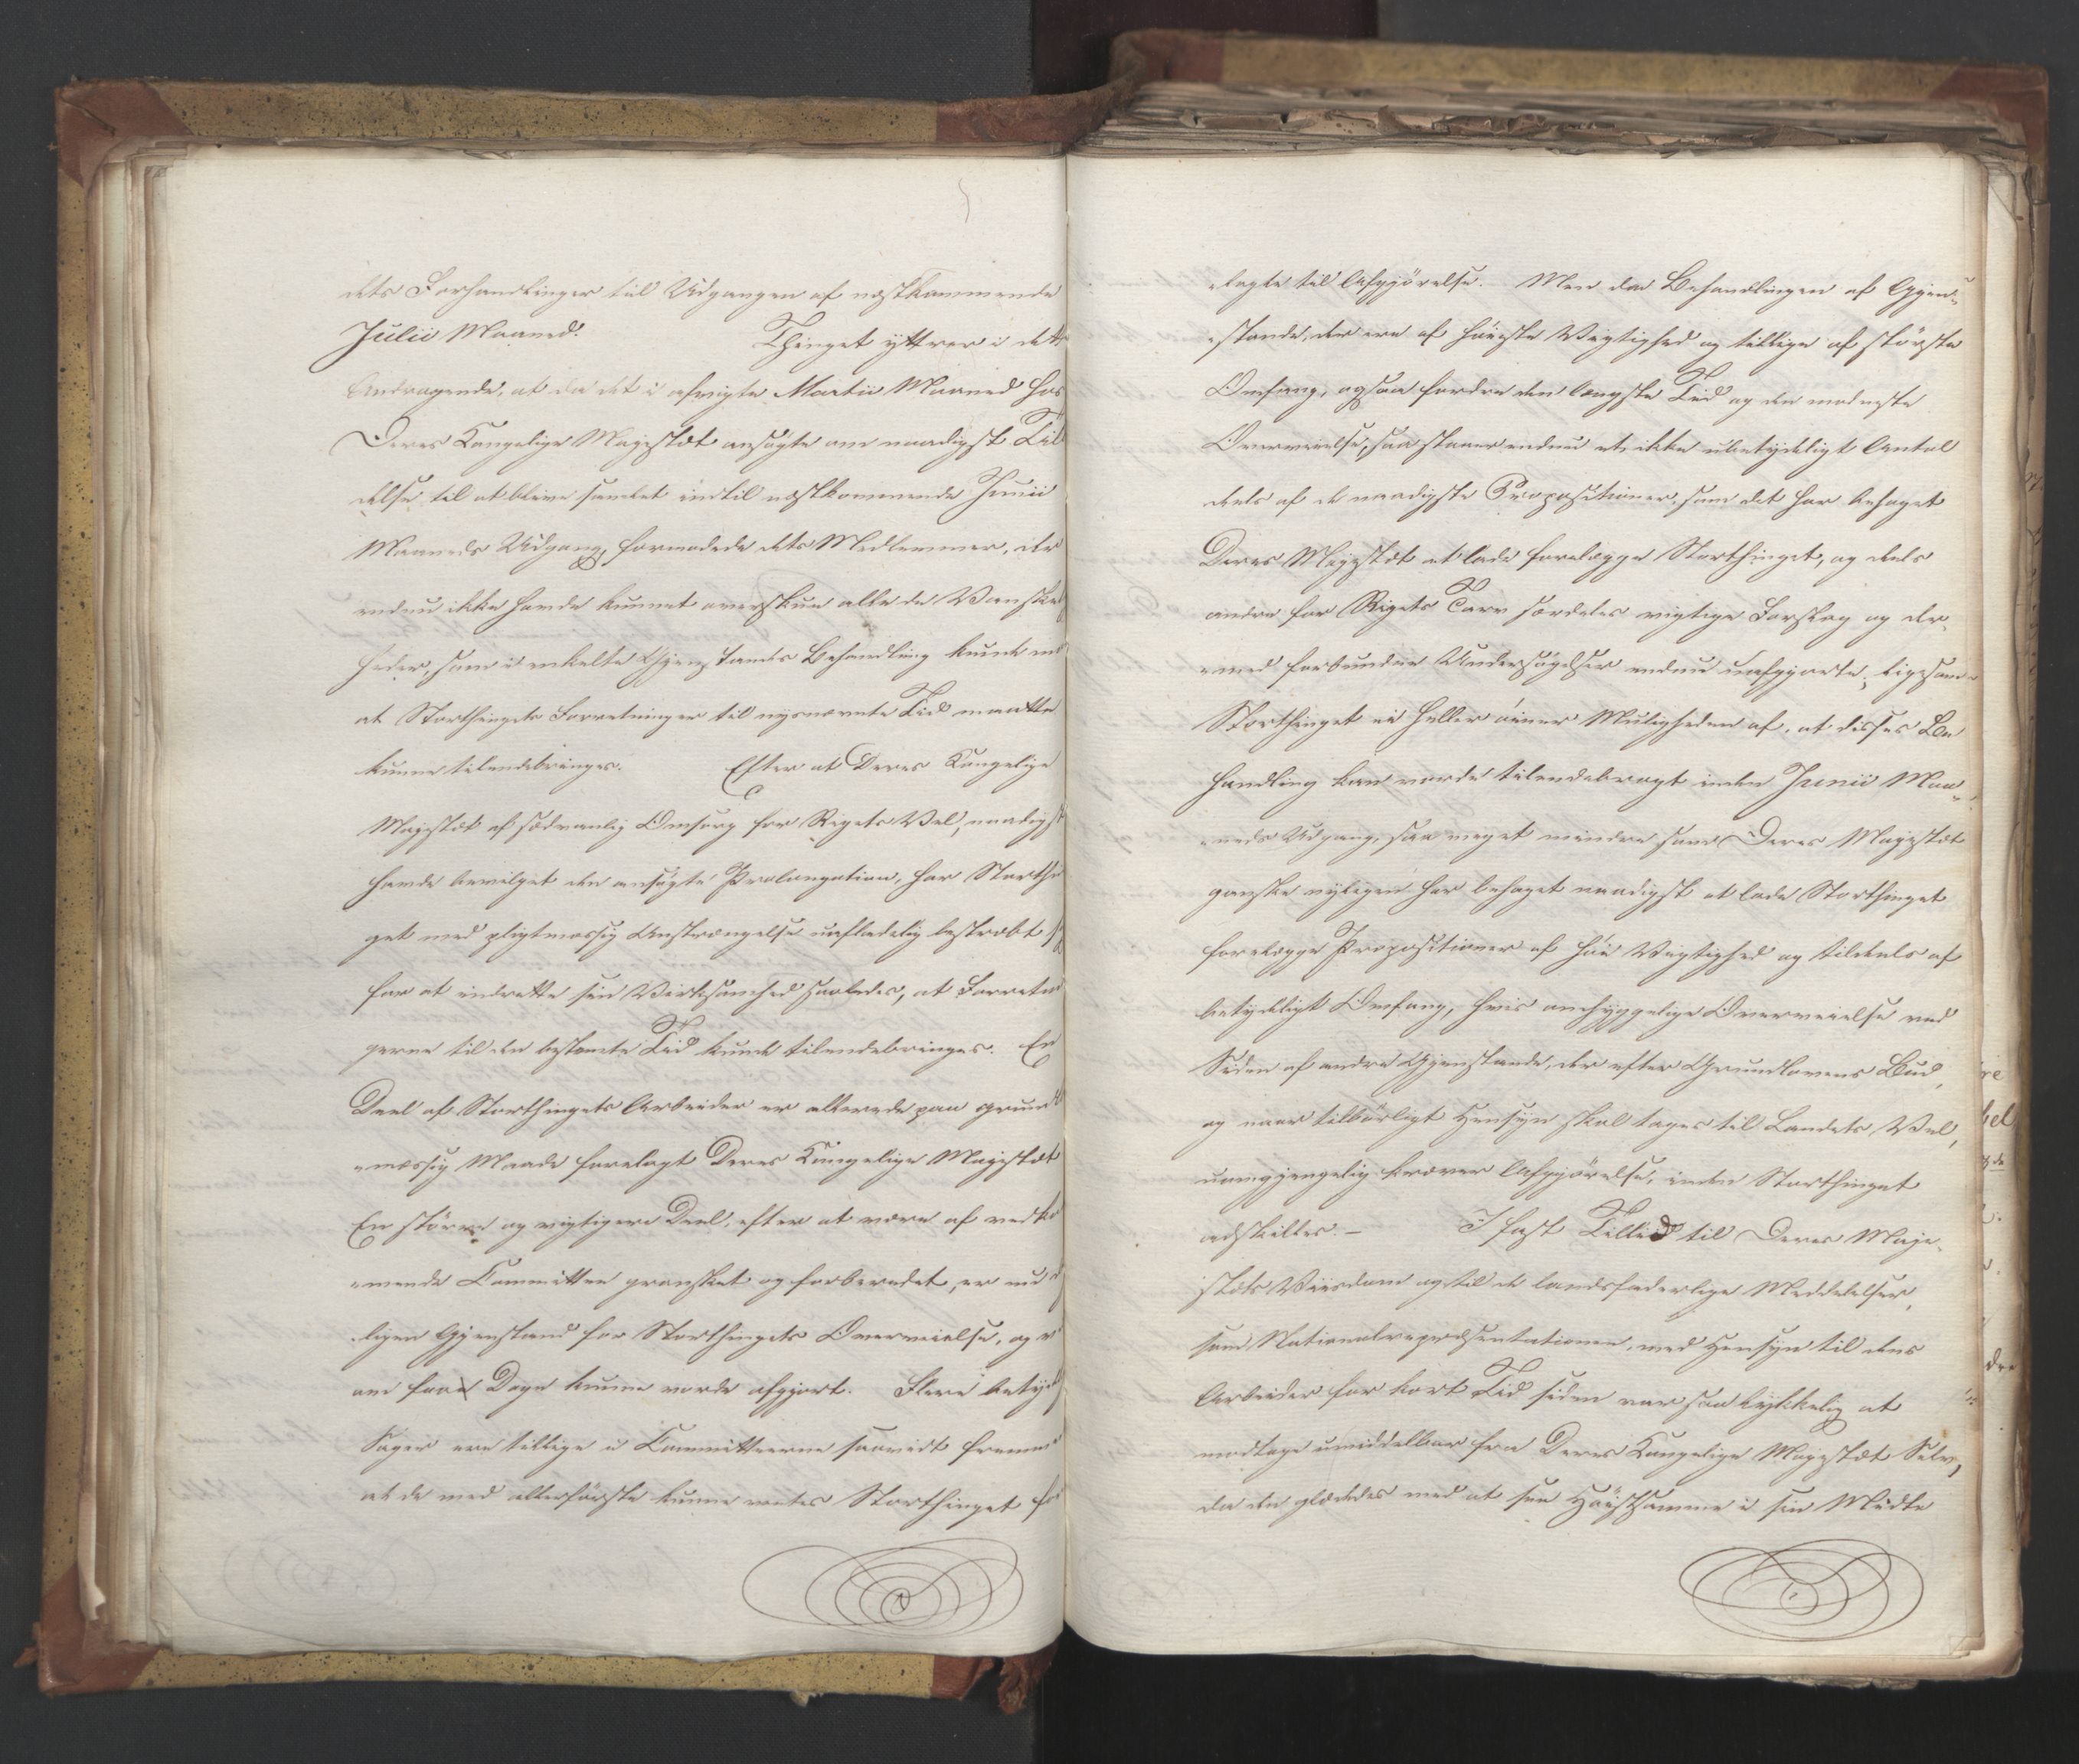 dets Forhandlinger til Udgangen af næstkommende
Julii Maaned. Thinget yttrer i dette
Andragende, at da det i afvigte Martii Maaned hos
Deres Kongelige Majestæt ansøgte om naadigst Til
delse til at blive samlet indtil næstkommende Junii
Maaneds Udgang, formodede dets Medlemmer, der
endnu ikke havde kunnet overskue alle de Vanskel
heder, som i enkelte Gjenstandes Behandling kunde
at Storthingets Forretninger til nysnævnte Tid maatte
kunne tilendebringes. Efter at Deres Kongelige
Majestæt af sædvanlig Omsorg for Rigets Vel, naadigst
havde bevilget den ansøgte Prolongation, har Storthi
get med pligtmæssig Anstrængelse uafladelig bestræbt
for at indrette sin Virksomhed saaledes, at Forretni
gerne til den bestemte Tid kunde tilendebringes. En
Deel af Storthingets Arbeider er allerede paa grundl
mæssig Maade forelagt Deres Kongelige Majestæt
En større og vigtigere Deel, efter at være af vedko
mende Committee gransket og forberedet, er nu
ligen Gjenstand for Storthingets Overveielse, og
om faae Dage kunne vorde afgjort. Flere betyd
Sager ere tillige i Committeerne saavidt fremm
at de med allerførste kunne ventes Storthinget
elagte til Afgjørelse. Men da Behandlingen af Gjen-
stande, der ere af høieste Vigtighed og tillige af største
Omfang, ogsaa fordre den længste Tid og den modneste
Overveielse, saa staaer endnu et ikke ubetydeligt Antal
deels af de naadigste Propositioner, som det har behaget
Deres Majestæt at lade forelægge Storthinget, og deels
andre for Rigets Tarv særdeles vigtige Forslag og der-
med forbundne Undersøgelser endnu uafgjorte; ligesom
Storthinget ei heller øiner Muligheden af, at disses Be
handling kan vorde tilendebragt inden Junii Maa-
neds Udgang, saa meget mindre som Deres Majestæt
ganske nyligen har behaget naadigst at lade Storthinget
forelægge Propositioner af høi Vigtighed og tildeels af
betydeligt Omfang, hvis omhyggelige Overveielse ved
Siden af andre Gjenstande, der efter Grundlovens Bud,
og naar tilbørligt Hensyn skal tages til Landets Vel,
uomgjængelig kræver Afgjørelse, inden Storthinget
adskilles. – I fast Tillid til Deres Maje-
stæts Viisdom og til de landsfaderlige Meddelelser,
som Nationalrepræsentationen, med Hensyn til dens
Arbeider for kort Tid siden var saa lykkelig at
modtage umiddelbar fra Deres Kongelige Majestæt Selv,
da den glædedes med at see Høistsamme i sin Midte